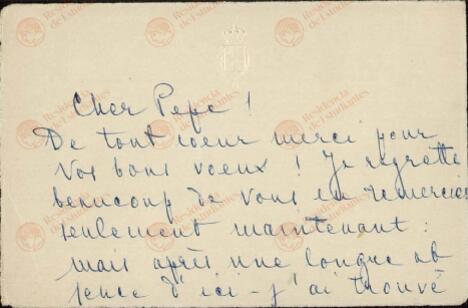 Cher Pepe !
De tout coeur merci pour
vos bons voeux ! Je regrette
beaucoup de vous en remercier
seulement maintenant :
mais après une longue ab
sence d'ici - j'ai trouvé
Residencia
de Estudiantes